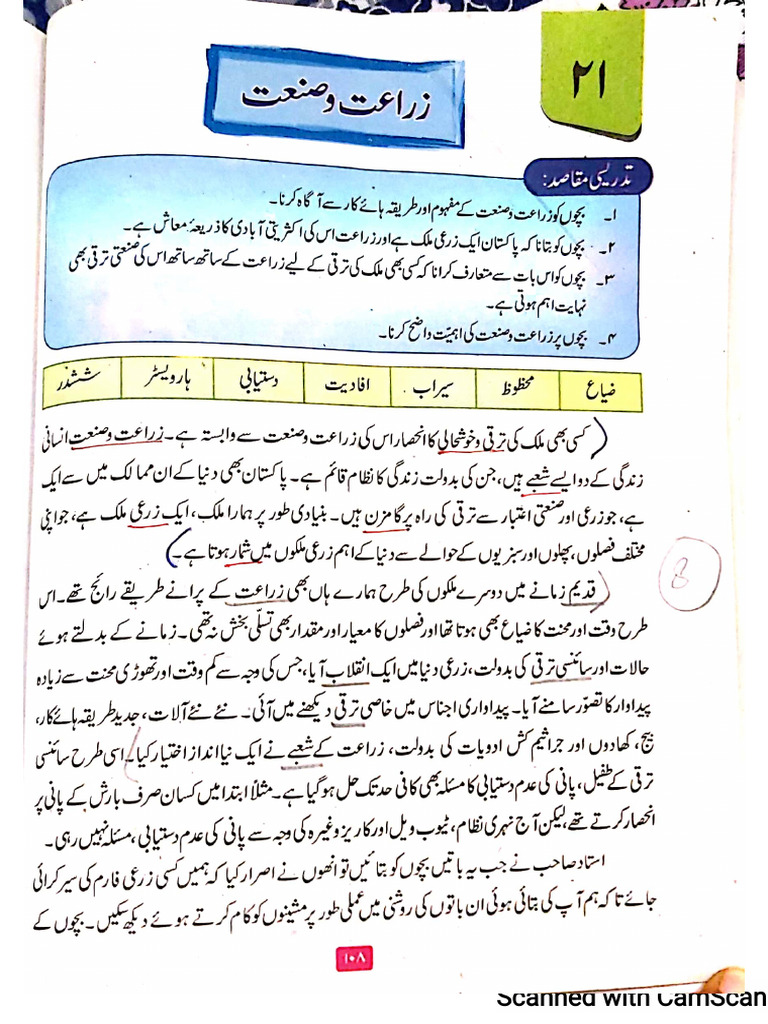 ۲۱
زراعت و صنعت
تدریسی مقاصد:
۱۔ بچوں کو زراعت و صنعت کے مفہوم اور طریقہ ہائے کار سے آگاہ کرنا۔
۲۔ بچوں کو بتانا کہ پاکستان ایک زرعی ملک ہے اور زراعت اس کی اکثریتی آبادی کا ذریعۂ معاش ہے۔
۳۔ بچوں کو اس بات سے متعارف کرانا کہ کسی بھی ملک کی ترقی کے لیے زراعت کے ساتھ ساتھ اس کی صنعتی ترقی بھی
نہایت اہم ہوتی ہے۔
۴۔ بچوں پر زراعت و صنعت کی اہمیّت واضح کرنا۔
ضیاع محظوظ سیراب افادیت دستیابی ہارویسٹر ششدر
کسی بھی ملک کی ترقی و خوشحالی کا انحصار اس کی زراعت و صنعت سے وابستہ ہے۔ زراعت و صنعت انسانی
زندگی کے دو ایسے شعبے ہیں، جن کی بدولت زندگی کا نظام قائم ہے۔ پاکستان بھی دنیا کے ان ممالک میں سے ایک
ہے، جو زرعی اور صنعتی اعتبار سے ترقی کی راہ پر گامزن ہیں۔ بنیادی طور پر ہمارا ملک، ایک زرعی ملک ہے، جو اپنی
مختلف فصلوں، پھلوں اور سبزیوں کے حوالے سے دنیا کے اہم زرعی ملکوں میں شمار ہوتا ہے۔
قدیم زمانے میں دوسرے ملکوں کی طرح ہمارے ہاں بھی زراعت کے پرانے طریقے رائج تھے۔ اس
8
طرح وقت اور محنت کا ضیاع بھی ہوتا تھا اور فصلوں کا معیار اور مقدار بھی تسلّی بخش نہ تھی۔ زمانے کے بدلتے ہوئے
حالات اور سائنسی ترقی کی بدولت، زرعی دنیا میں ایک انقلاب آیا، جس کی وجہ سے کم وقت اور تھوڑی محنت سے زیادہ
پیداوار کا تصوّر سامنے آیا۔ پیداواری اجناس میں خاصی ترقی دیکھنے میں آئی۔ نئے نئے آلات، جدید طریقہ ہائے کار،
بیج، کھادوں اور جراثیم کش ادویات کی بدولت، زراعت کے شعبے نے ایک نیا انداز اختیار کیا۔ اسی طرح سائنسی
ترقی کے طفیل، پانی کی عدم دستیابی کا مسئلہ بھی کافی حد تک حل ہو گیا ہے۔ مثلاً ابتدا میں کسان صرف بارش کے پانی پر
انحصار کرتے تھے، لیکن آج نہری نظام، ٹیوب ویل اور کاریز وغیرہ کی وجہ سے پانی کی عدم دستیابی، مسئلہ نہیں رہی۔
استاد صاحب نے جب یہ باتیں بچوں کو بتائیں تو انھوں نے اصرار کیا کہ ہمیں کسی زرعی فارم کی سیر کرائی
جائے تاکہ ہم آپ کی بتائی ہوئی ان باتوں کی روشنی میں عملی طور پر مشینوں کو کام کرتے ہوئے دیکھ سکیں۔ بچوں کے
۱۰۸
Scanned with CamScan